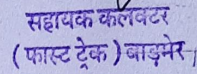 सहायक कलक्टर
(फास्ट ट्रेक) बाड़मेर